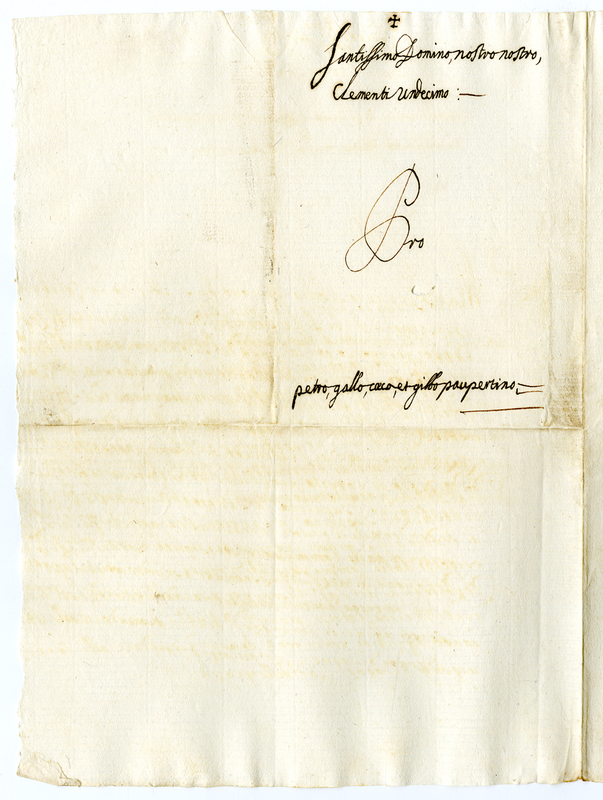 ✝
Santissimo Domino, nostro nostro,
Clementi Undecimo :—
Pro
petro, gallo, cœco, et gibbo paupertino,